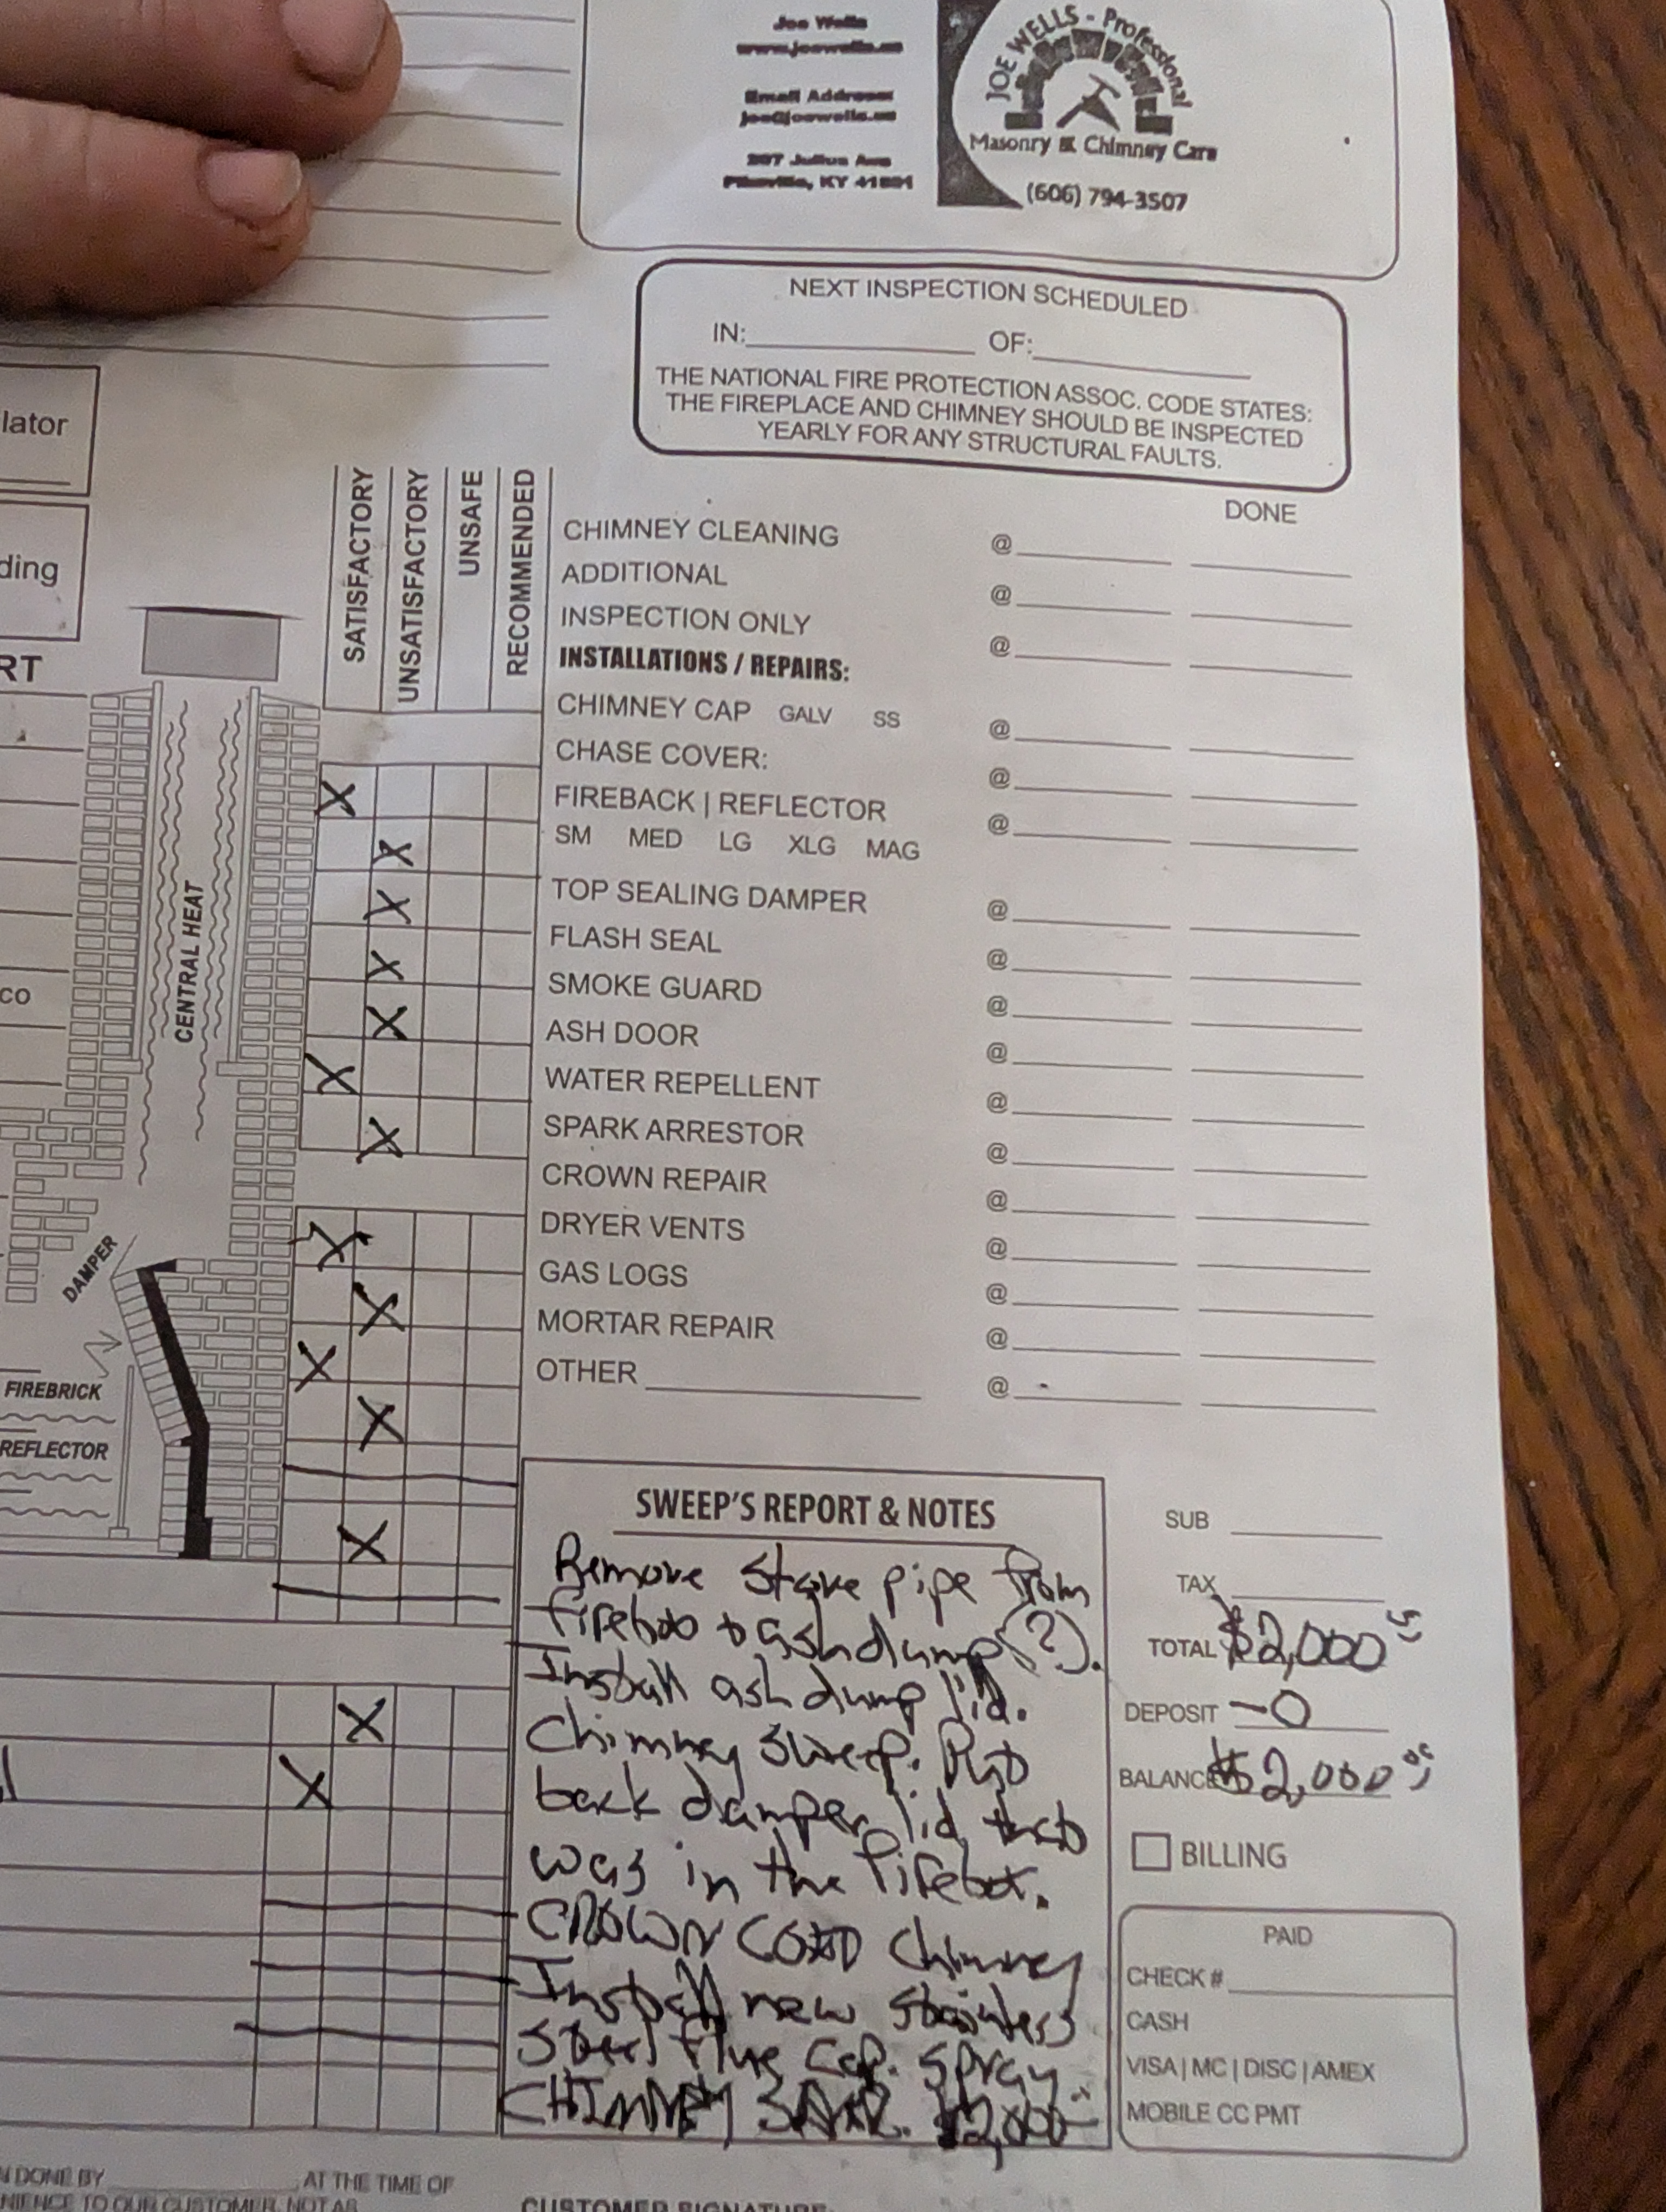 Joe Wells
www.joewells.us
Email Address:
joe@joewells.us
JOE WELLS - Professional
Masonry & Chimney Care
(606) 794-3507
NEXT INSPECTION SCHEDULED
IN: OF:
THE NATIONAL FIRE PROTECTION ASSOC. CODE STATES:
THE FIREPLACE AND CHIMNEY SHOULD BE INSPECTED
YEARLY FOR ANY STRUCTURAL FAULTS.
lator
ding
RT
co
SATISFACTORY
UNSATISFACTORY
UNSAFE
RECOMMENDED
CENTRAL HEAT
DAMPER
FIREBRICK
REFLECTOR
DONE
CHIMNEY CLEANING @
ADDITIONAL @
INSPECTION ONLY @
INSTALLATIONS / REPAIRS:
CHIMNEY CAP GALV SS @
CHASE COVER: @
FIREBACK | REFLECTOR @
SM MED LG XLG MAG
TOP SEALING DAMPER @
FLASH SEAL @
SMOKE GUARD @
ASH DOOR @
WATER REPELLENT @
SPARK ARRESTOR @
CROWN REPAIR @
DRYER VENTS @
GAS LOGS @
MORTAR REPAIR @
OTHER @
SWEEP'S REPORT & NOTES
Remove stove pipe from
firebox + ash dump (?).
Install ash dump lid.
Chimney sweep. Put
back damper lid that
was in the firebox.
CROWN COAT Chimney
Install new stainless
steel flue cap. Spray
CHIMNEY $2,000
SUB
TAX
TOTAL $2,000
DEPOSIT -0
BALANCE $2,000
BILLING
PAID
CHECK #
CASH
VISA | MC | DISC | AMEX
MOBILE CC PMT
N DONE BY , AT THE TIME OF
NIENCE TO OUR CUSTOMER, NOT AS
CUSTOMER SIGNATURE: